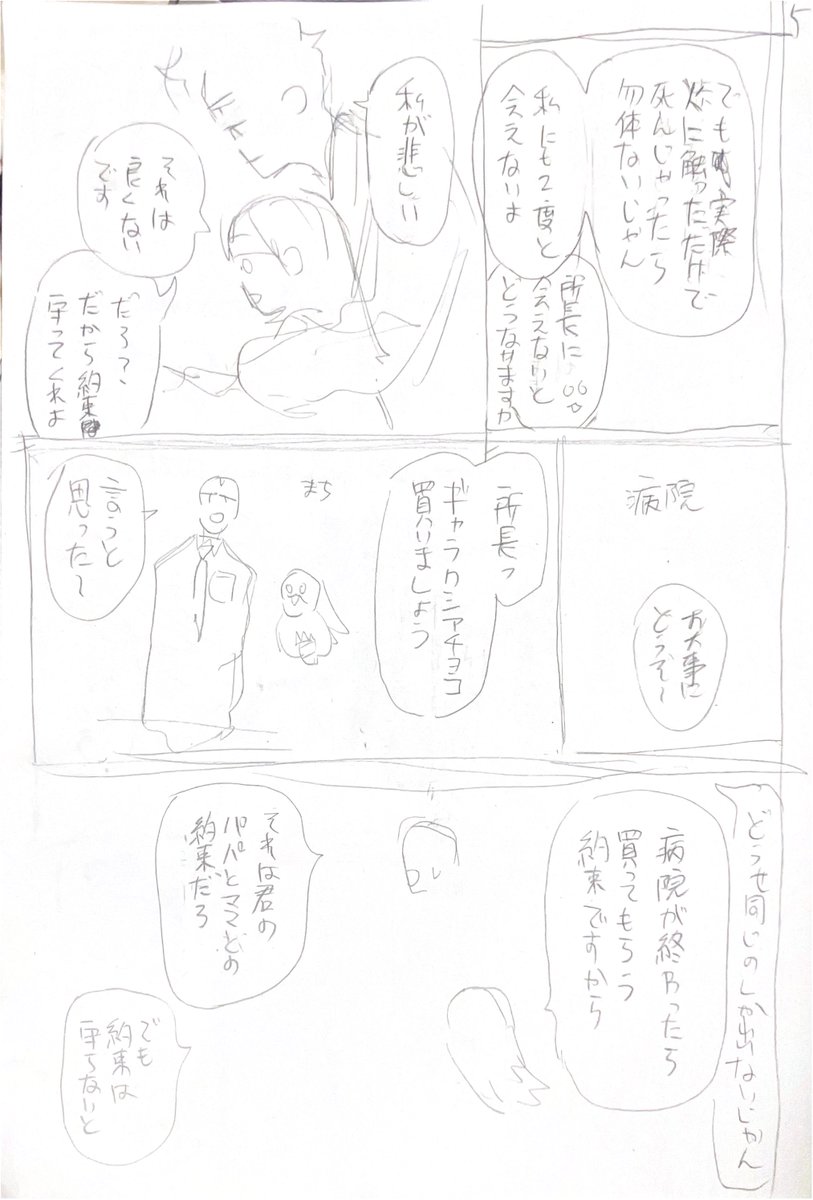 5
でも実際
に触っただけで
死んじゃったら
勿体ないじゃん
私にも2度と
会えないよ
所長に
会えないと
どうなりますか
私が悲しい
それは
良くない
です
だろ?
だから約束
守ってくれよ
病院
お大事に
どうぞ〜
所長っ
ギャラクシアチョコ
買いましょう
まち
言うと
思った〜
どうせ同じのしか出ないじゃん
病院が終わったら
買ってもらう
約束ですから
それは君の
パパとママとの
約束だろ
でも
約束は
守らないと